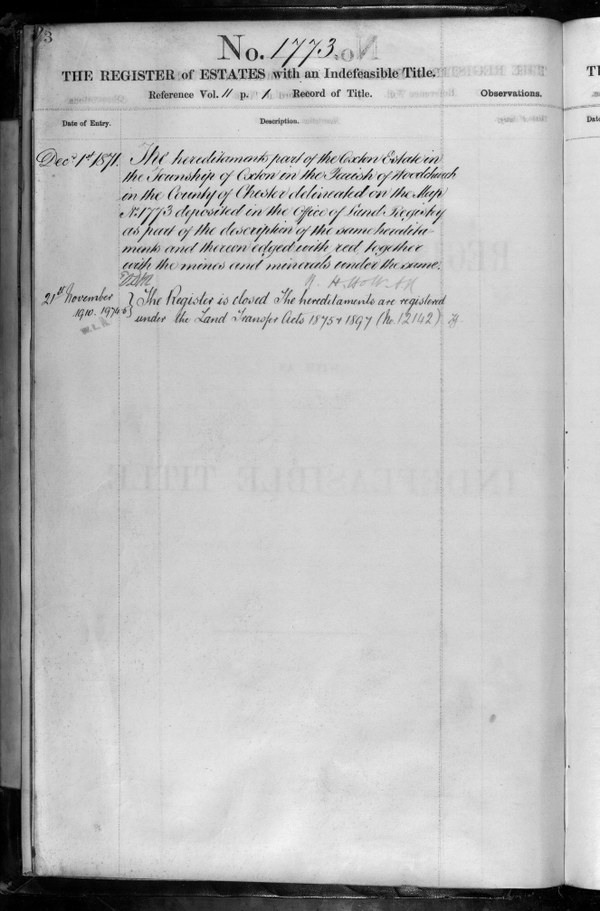 3
No. 1773.
THE REGISTER of ESTATES with an Indefeasible Title.
Reference Vol. 11 p. 1 Record of Title. Observations.
Date of Entry. Description.
Decr 1st 1871. The hereditaments part of the Oxton Estate in
the Township of Oxton in the Parish of Woodchurch
in the County of Chester delineated on the Map
No. 1773 deposited in the Office of Land Registry
as part of the description of the same heredita-
ments and thereon edged with red together
with the mines and minerals under the same.
21st November 1910. The Register is closed The hereditaments are registered
under the Land Transfer Acts 1875 & 1897 (No. 12142)